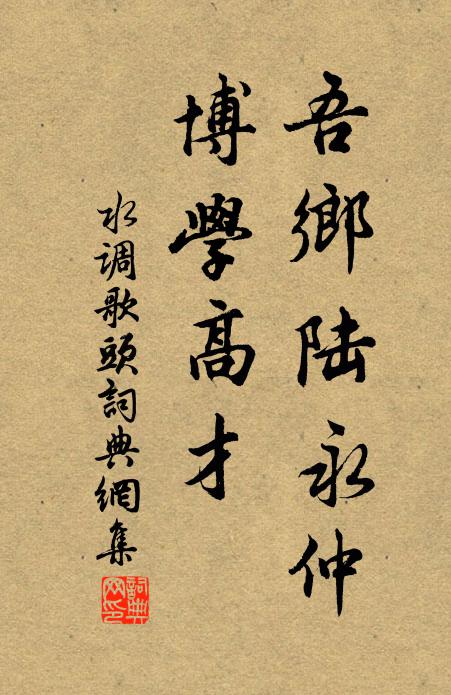 吾鄉陸永仲
博學高才
水调歌頭詞典網集
詞典网印